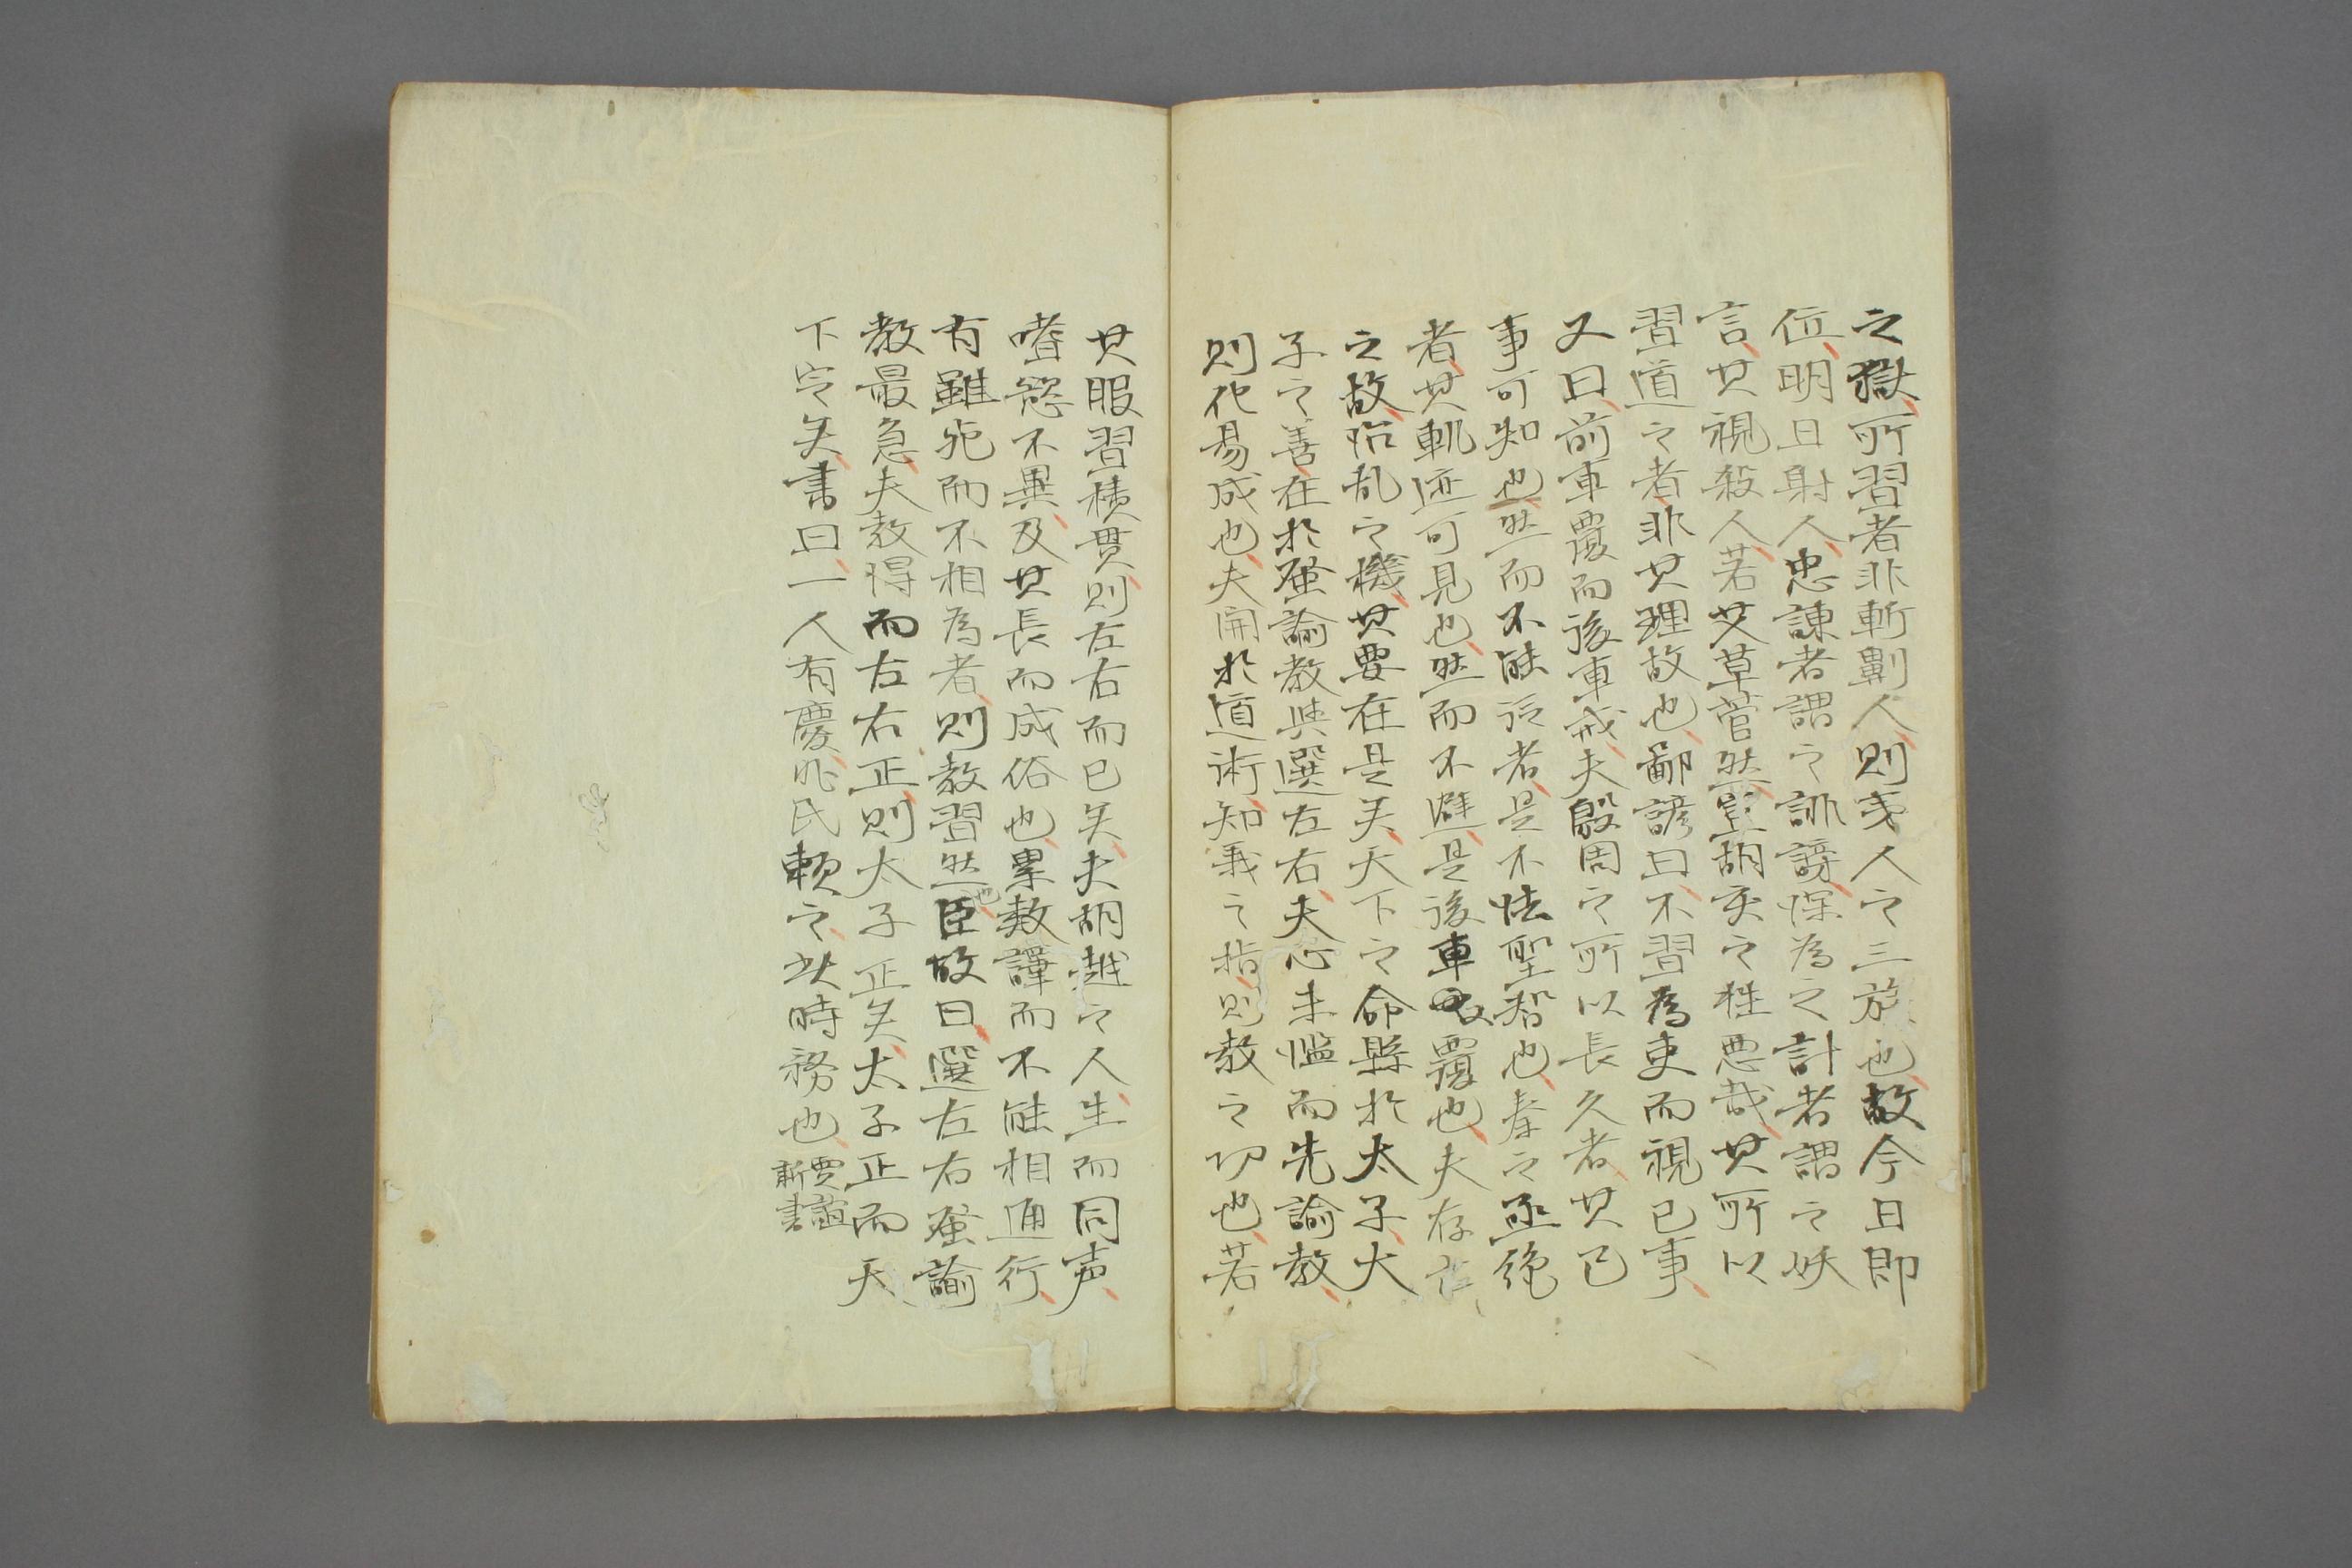 之獄所習者非斬劓人則夷人之三族也故今日即
位明日射人忠諫者謂之誹謗深為之計者謂之妖
言其視殺人若艾草菅然豈胡亥之性悪哉其所以
習道之者非其理故也鄙諺曰不習為吏而視已事
又曰前車覆而後車戒夫殷周之所以長久者其已
事可知也然而不能從者是不法聖智也秦之亟絶
者其軌迹可見也然而不避是後車又覆也夫存亡
之故治乱之機其要在是矣天下之命縣於太子太
子之善在於蚤諭教與選左右夫心未濫而先諭教
則化易成也夫開於道術知義之指則教之功也若
其服習積貫則左右而已矣夫胡越之人生而同声
嗜慾不異及其長而成俗也累数譯而不能相通行
有雖死而不相為者則教習然也臣故曰選左右蚤諭
教最急夫教得而左右正則太子正矣太子正而天
下定矣書曰一人有慶兆民頼之此時務也賈誼新書